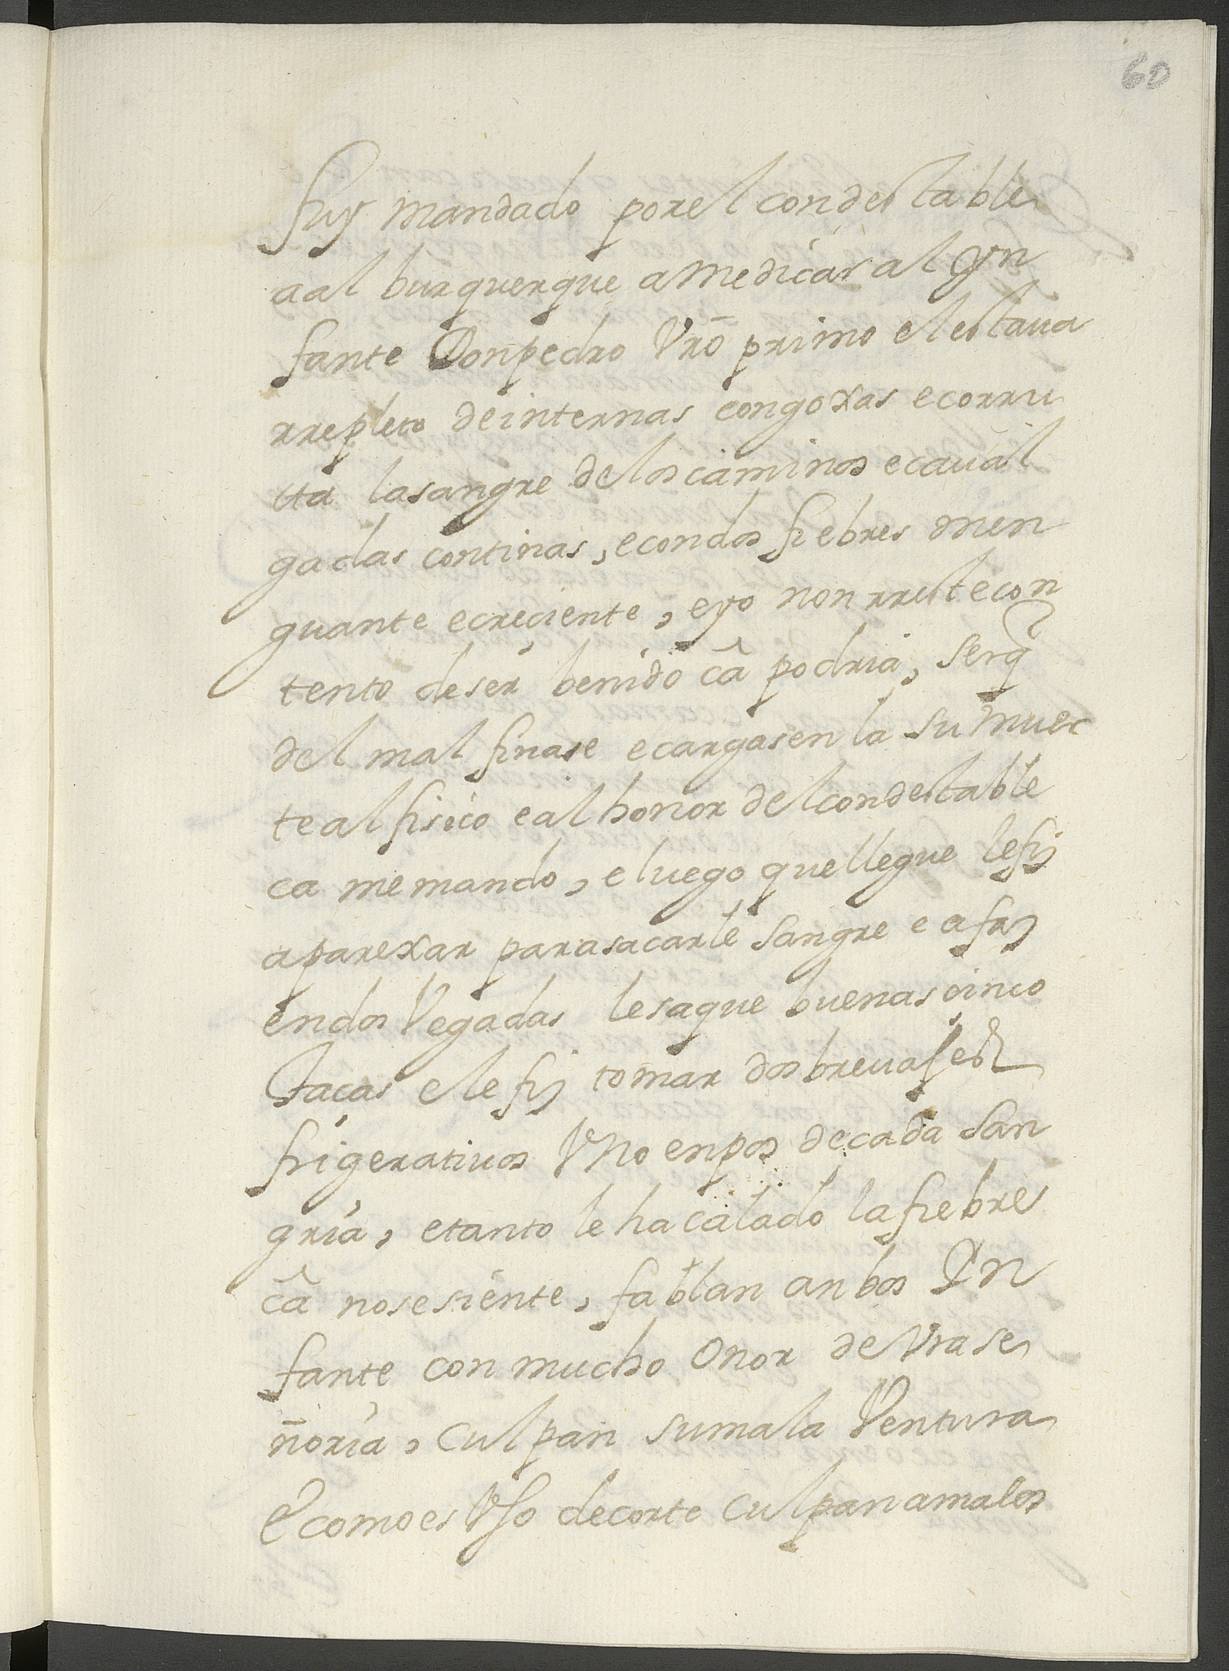 60
fuy mandado porel condestable
aal burquerque amedicar al yn
fante Donpedro Vrō primo elestaua
rrepleto deinternas congoxas ecorru
ta lasangre delos caminos ecaual
gadas continas, econdos fiebres men
guante ecreciente, eyo non rruste con
tento deser benido câ podria, serq̃
del mal finase ecargasen la su muer
te al fisico eal honor del condestable
ca memando, eluego quellegue lefiz
aparexar parasacarle sangre e afaz
endos Vegadas lesaque buenas cinco
Tacas elefiz tomar dos breuages
frigerativos Vno enpos decada san
gria, etanto le ha calado lafiebre
câ nosesiente, fablan anbos Yn
fante con mucho Onor de Vrase
ñoria, culpan sumala Ventura
E comoes Vso decorte culpan amalos